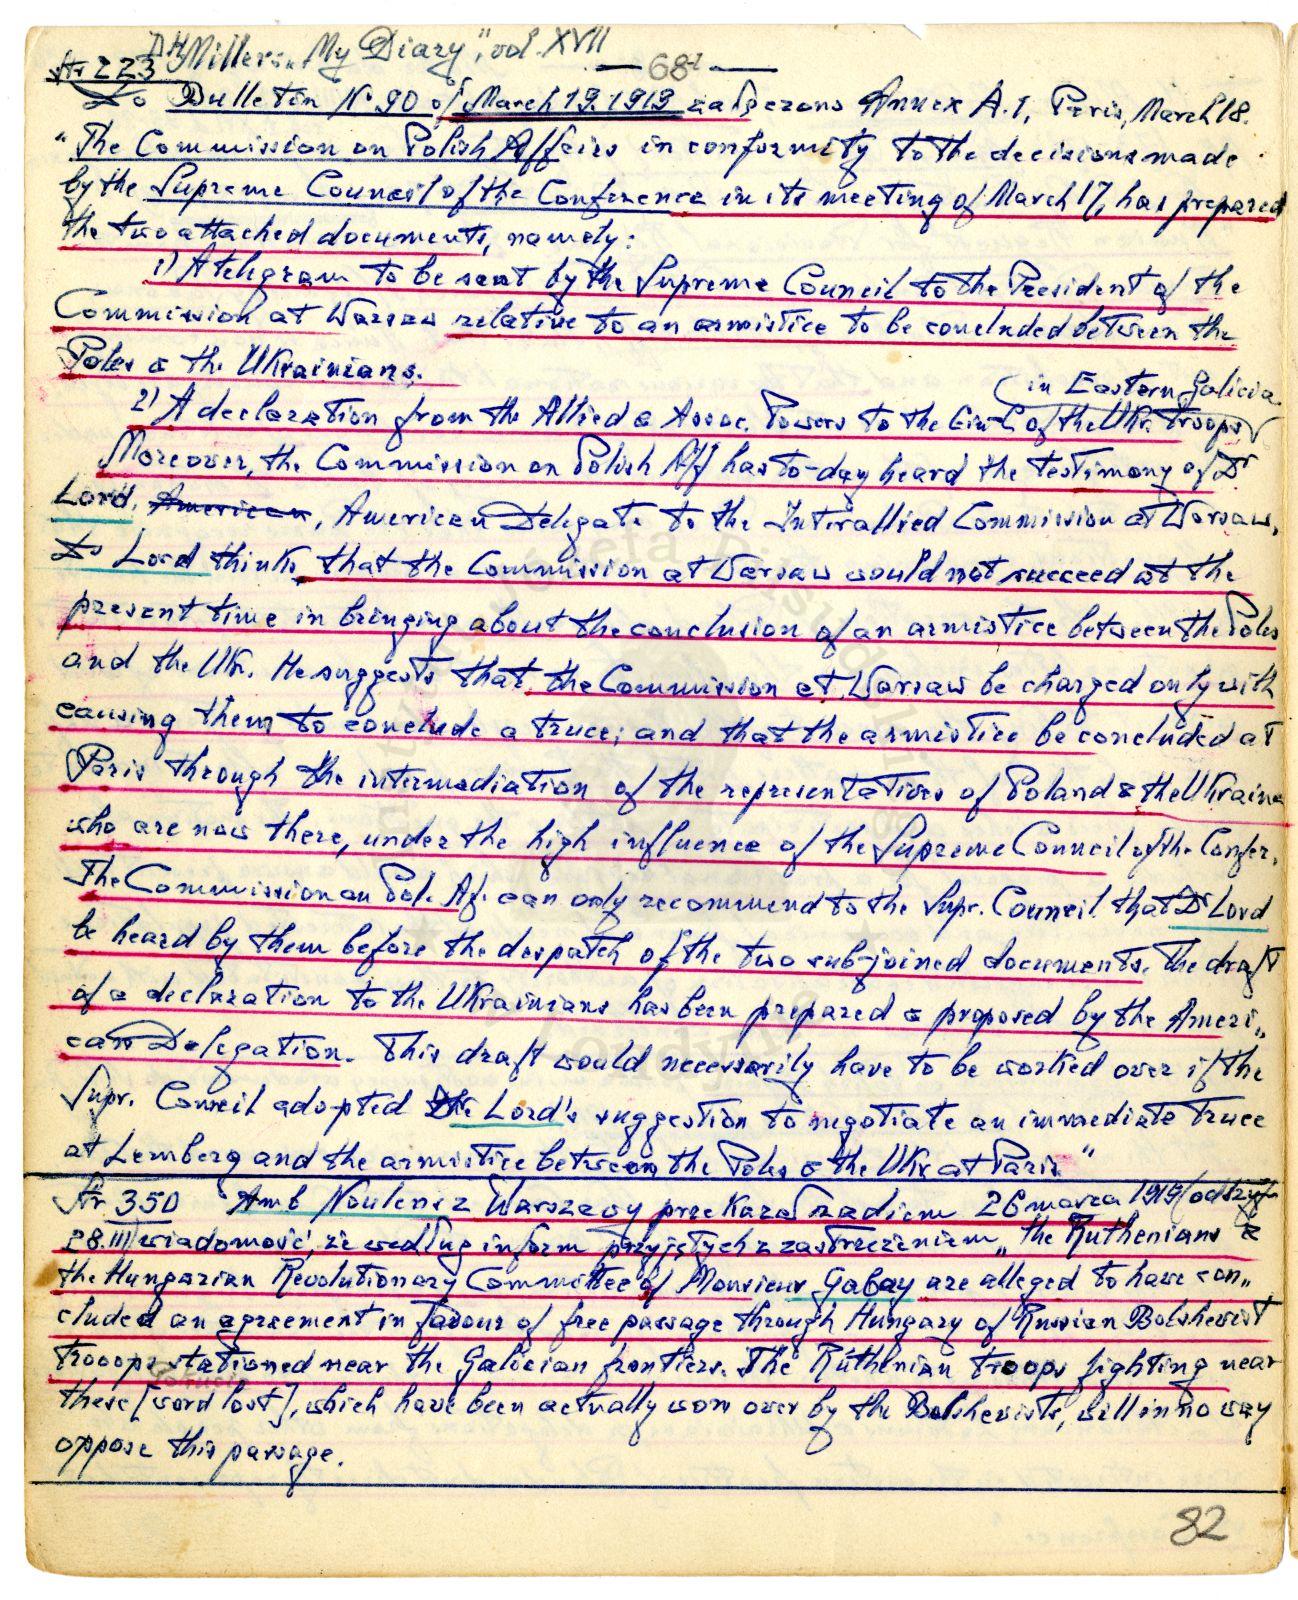 DH Miller's „My Diary", vol. XVII
Nr 223 — 68-1 —
Do Bulletin No. 90 of March 19. 1919 załączono Annex A. I, Paris, March 18.
"The Commission on Polish Affairs in conformity to the decisions made
by the Supreme Council of the Conference in its meeting of March 17, has prepared
the two attached documents, namely:
1) A telegram to be sent by the Supreme Council to the President of the
Commission at Warsaw relative to an armistice to be concluded between the
Poles & the Ukrainians.
(in Eastern Galicia
2) A declaration from the Allied & Assoc. Powers to the G-in-C of the Ukr. troops
Moreover, the Commission on Polish Aff has to-day heard the testimony of Dr
Lord, American, American Delegate to the Interallied Commission at Warsaw.
Dr Lord thinks that the Commission at Warsaw would not succeed at the
present time in bringing about the conclusion of an armistice between the Poles
and the Ukr. He suggests that the Commission at Warsaw be charged only with
causing them to conclude a truce; and that the armistice be concluded at
Paris through the intermediation of the representatives of Poland & the Ukraine
who are now there, under the high influence of the Supreme Council of the Confer.
The Commission on Pol. Af. can only recommend to the Supr. Council that Dr Lord
be heard by them before the despatch of the two sub-joined documents. The draft
of a declaration to the Ukrainians has been prepared & proposed by the Ameri„
can Delegation. This draft would necessarily have to be worked over if the
Supr. Council adopted Dr Lord's suggestion to negotiate an immediate truce
at Lemberg and the armistice between the Poles & the Ukr at Paris"
Nr 350 Amb Noulens z Warszawy przekazał radiem 26 marca 1919 (odszyfr
28.III) wiadomość, że według inform przyjętych z zastrzeżeniem „the Ruthenians &
the Hungarian Revolutionary Committee of Monsieur Gabay are alleged to have con„
cluded an agreement in favour of free passage through Hungary of Russian Bolshevist
trooops stationed near the Galician frontiers. The Ruthenian troops fighting near
these [word lost], which have been actually won over by the Bolshevists, will in no way
oppose this passage.
82